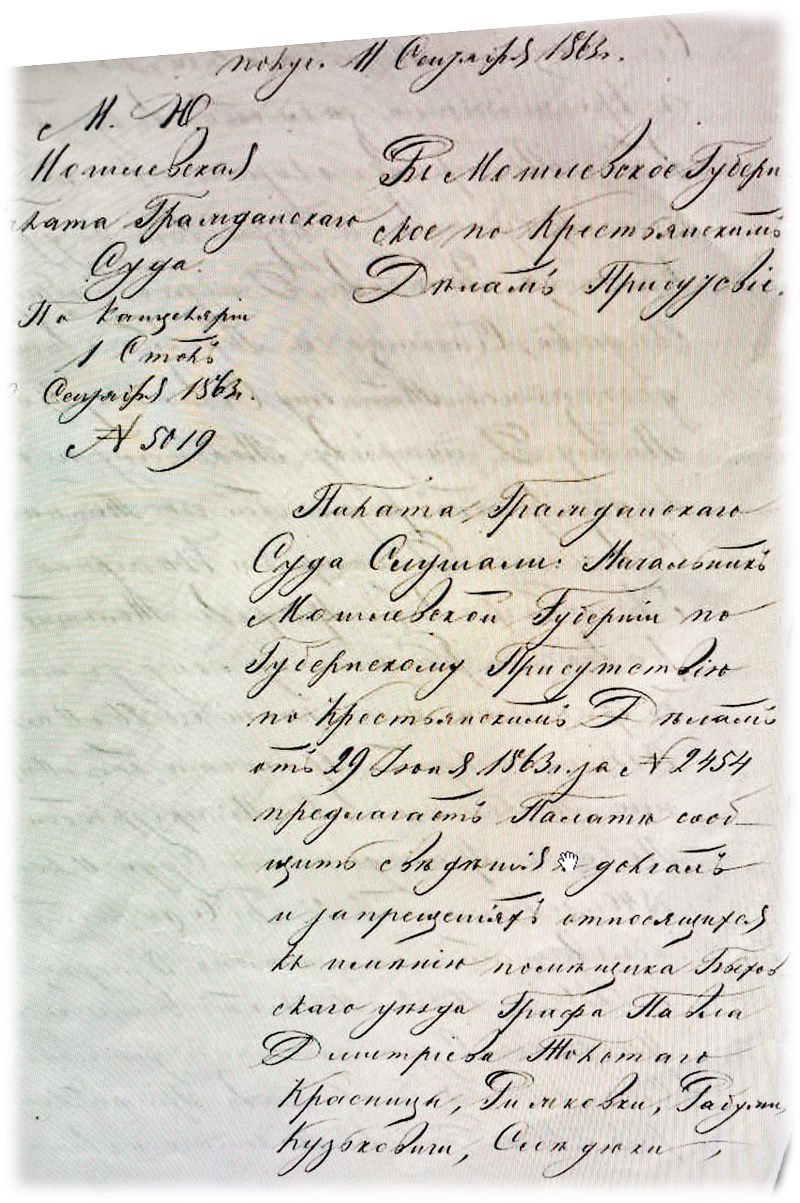 получ. 11 Сентября 1863г.
М. Ю.
Могилевская
Палата Гражданскаго
Суда.
По Канцеляріи
1 Столъ
Сентября 1863г.
№ 5019
Въ Могилевское Губерн
ское по Крестьянскимъ
Дѣламъ Присутствіе.
Палата Гражданскаго
Суда Слушали: Начальникъ
Могилевской Губерніи по
Губернскому Присутствію
по Крестьянскимъ Дѣламъ
отъ 29 Іюня 1863г. за № 2454
предлагаетъ Палатѣ сооб
щить свѣденія о долгахъ
и запрещеніяхъ относящихся
къ имѣнію помѣщика Быхов
скаго уѣзда Графа Павла
Дмитріева Толстаго
Красницы, Рыжковки, Рабучи,
Кузьковичи, Следюки,